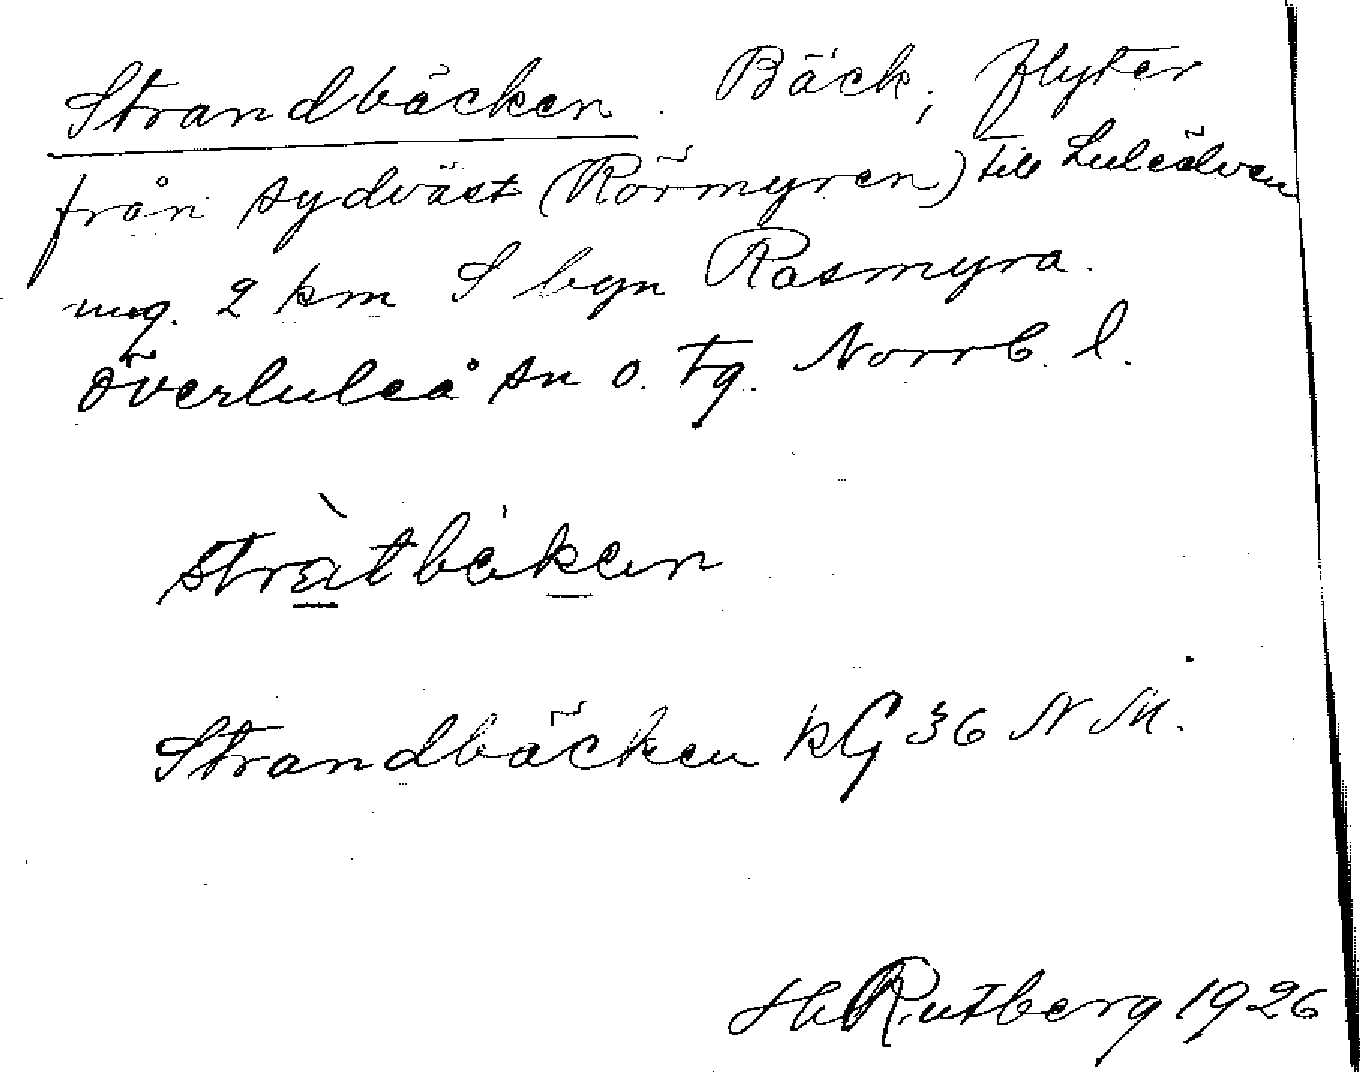 Strandbäcken. Bäck, flyter
från sydväst (Rörmyren) till Luleälven
ung. 2 km S byn Rasmyra.
Överluleå sn o. tg. Norrb. l.
stràtbäken
Strandbäcken kG 36 N M.
H Rutberg 1926